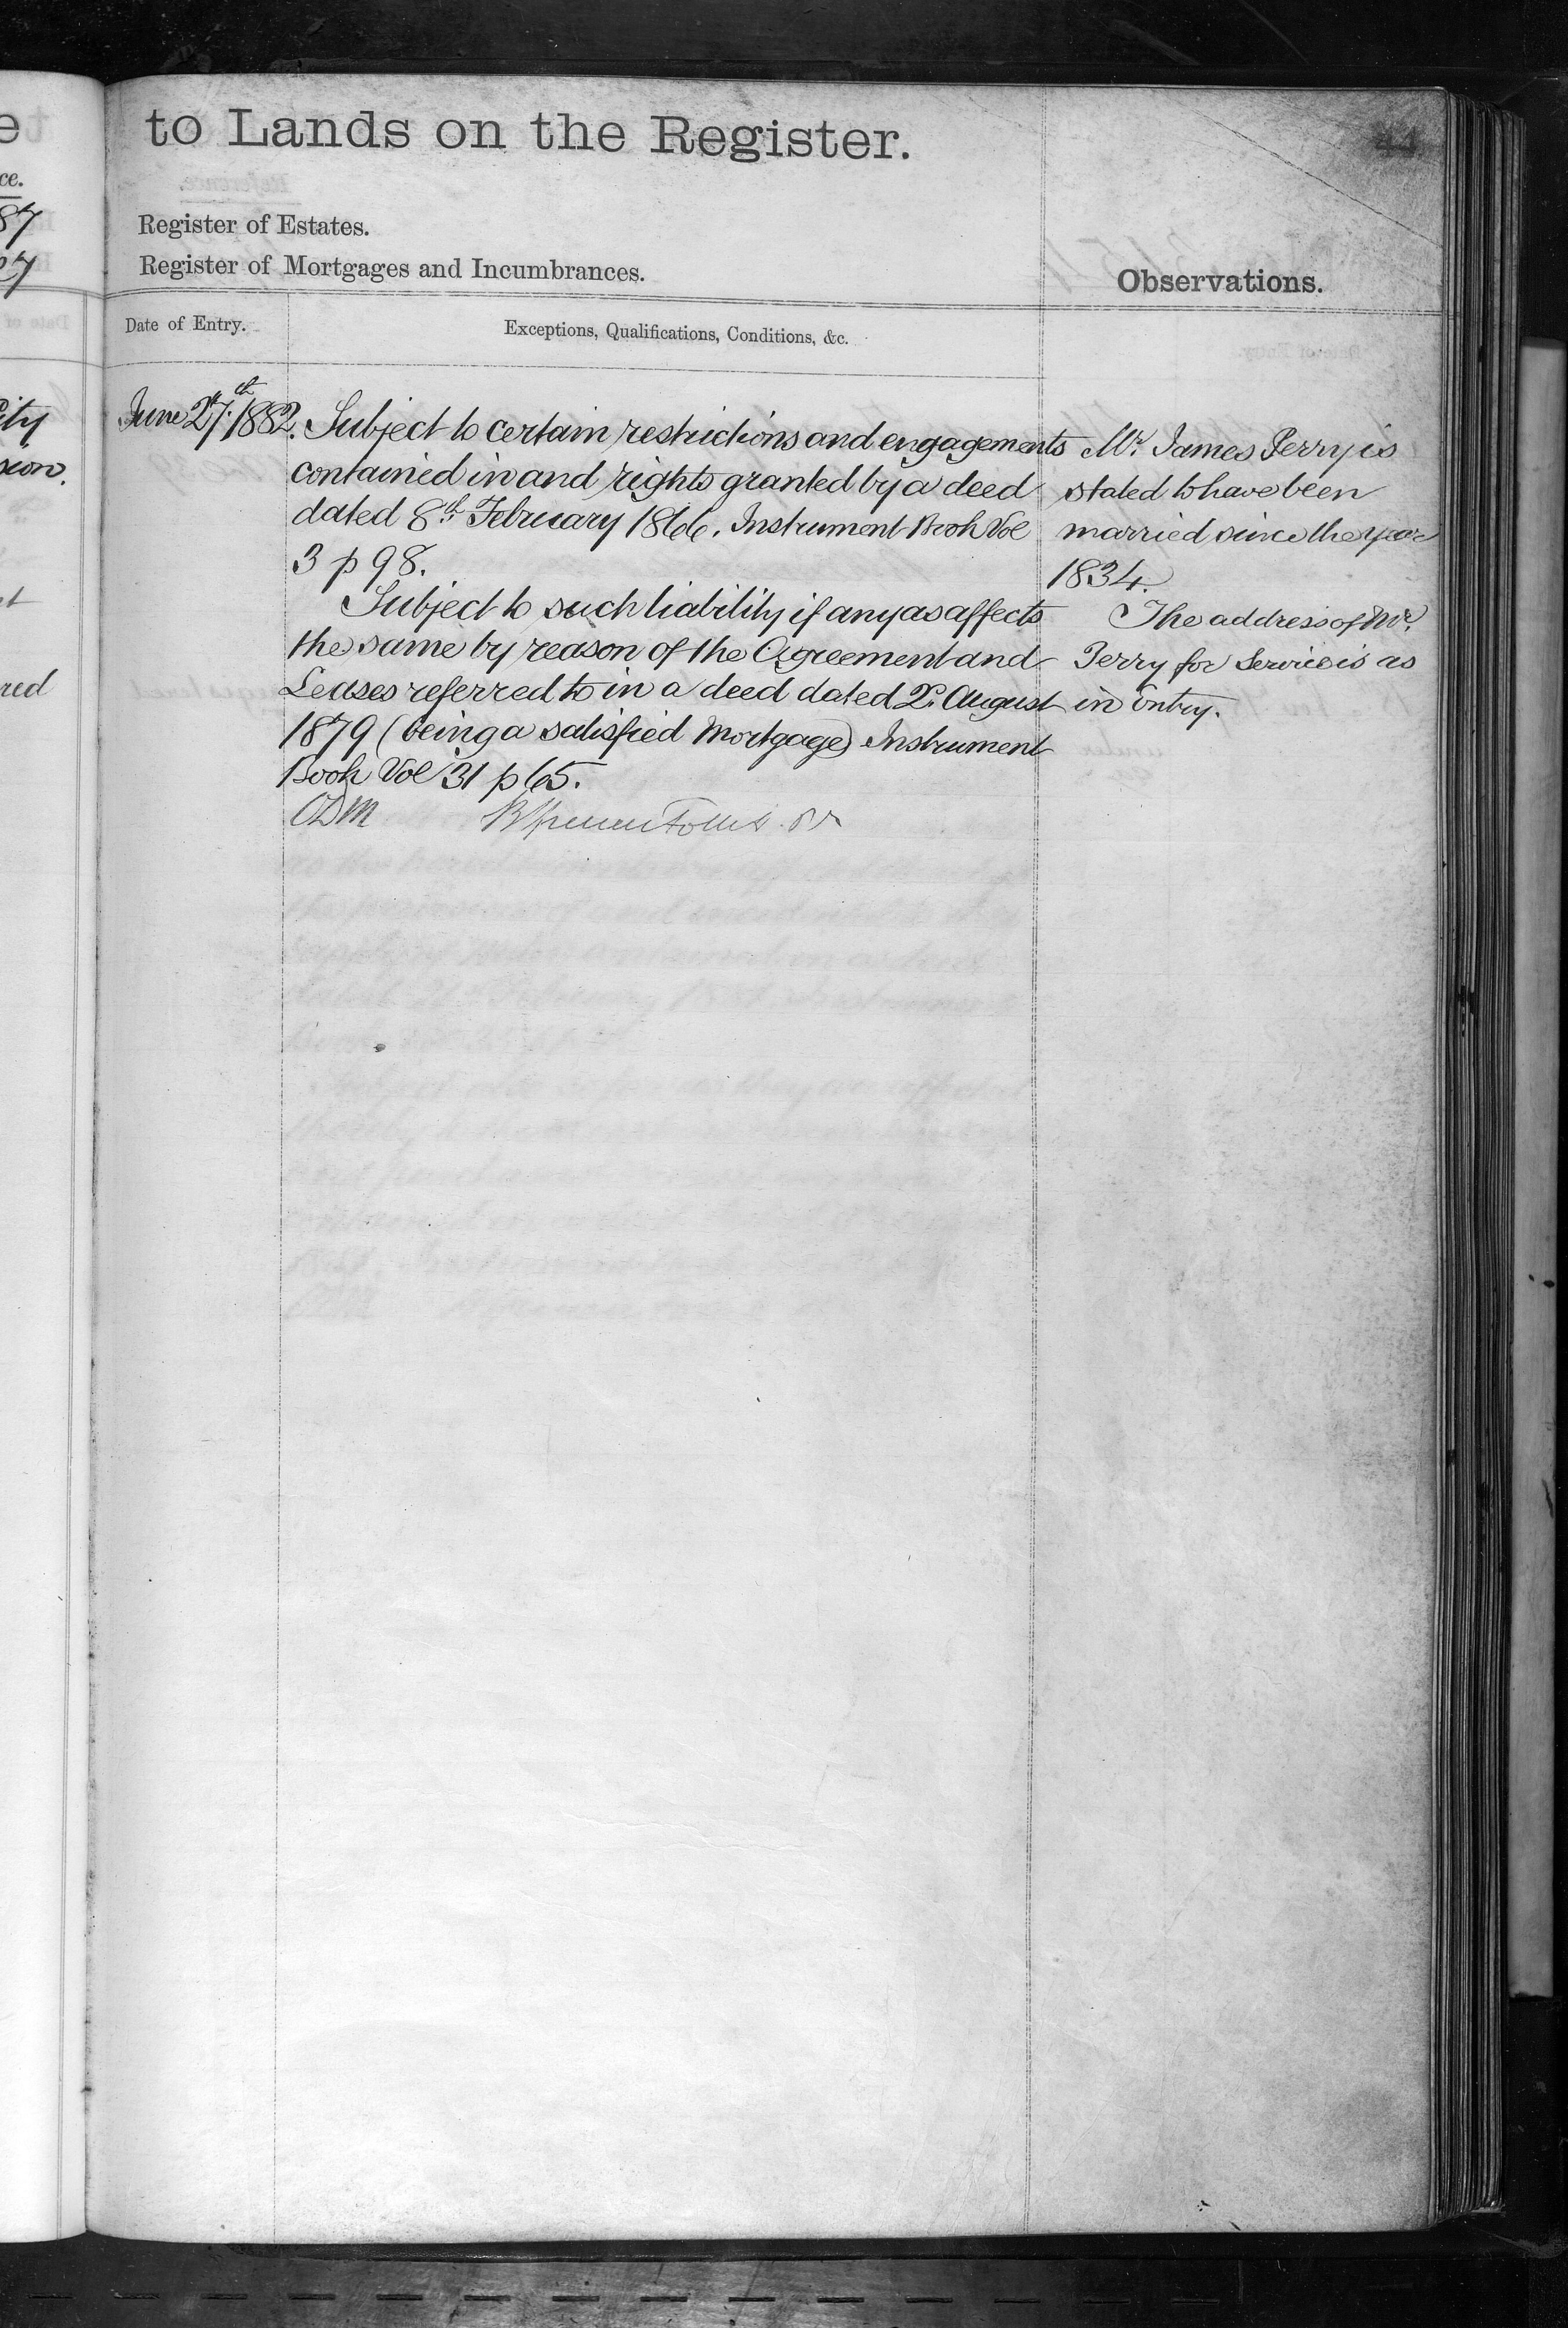 to Lands on the Register.
44
Register of Estates.
Register of Mortgages and Incumbrances.
Observations.
Date of Entry.
Exceptions, Qualifications, Conditions, &c.
June 27th 1882.
Subject to certain restrictions and engagements
contained in and rights granted by a deed
dated 8th February 1866. Instrument Book Vol
3 p 98.
Subject to such liability if any as affects
the same by reason of the Agreement and
Leases referred to in a deed dated 2d. August
1879 (being a satisfied Mortgage) Instrument
Book Vol 31 p 65.
Mr. James Perry is
stated to have been
married since the year
1834.
The address of Mr.
Perry for Service is as
in Entry.